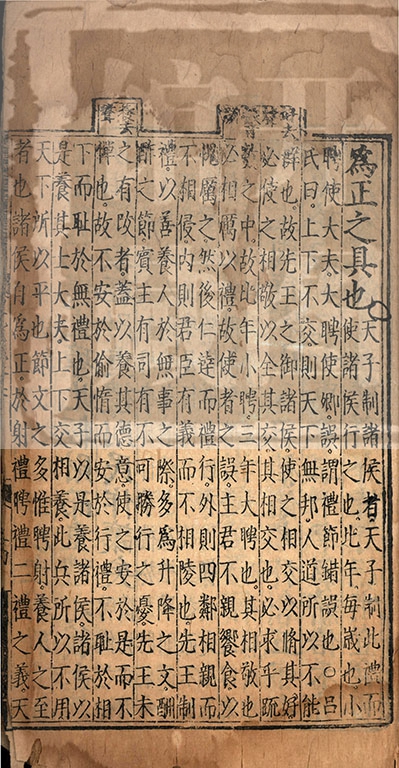 爲正之具也○
天子制諸侯者天子制此禮而
使諸侯行之也比年每歲也小
聘使大夫大聘使卿誤謂禮節錯誤也○呂
氏曰上下不交則天下無邦人道所以不能
群也故先王之御諸侯使之相交以脩其好
必使之相敬以全其交其相交也必求乎疏
數之中故比年小聘三年大聘也其相敬也
必相厲以禮故使者之誤主君不親饗食以
愧厲之然後仁達而禮行外則四鄰相親而
不相侵內則君臣有義而不相陵也先王制
禮以善養人於無事之際多爲升降之文酬
酢之節賓主有司有不可勝行之憂先王未
之有改者蓋以養其德意使之安於是而不
憚也故不安於偷惰而安於行禮不恥於相
下而恥於無禮也天子以是養諸侯諸侯以
是養其士大夫上下交相養此兵所以不用
天下所以平也節文之多惟聘射養人之至
者也諸侯自爲正於射禮聘禮二禮之義天